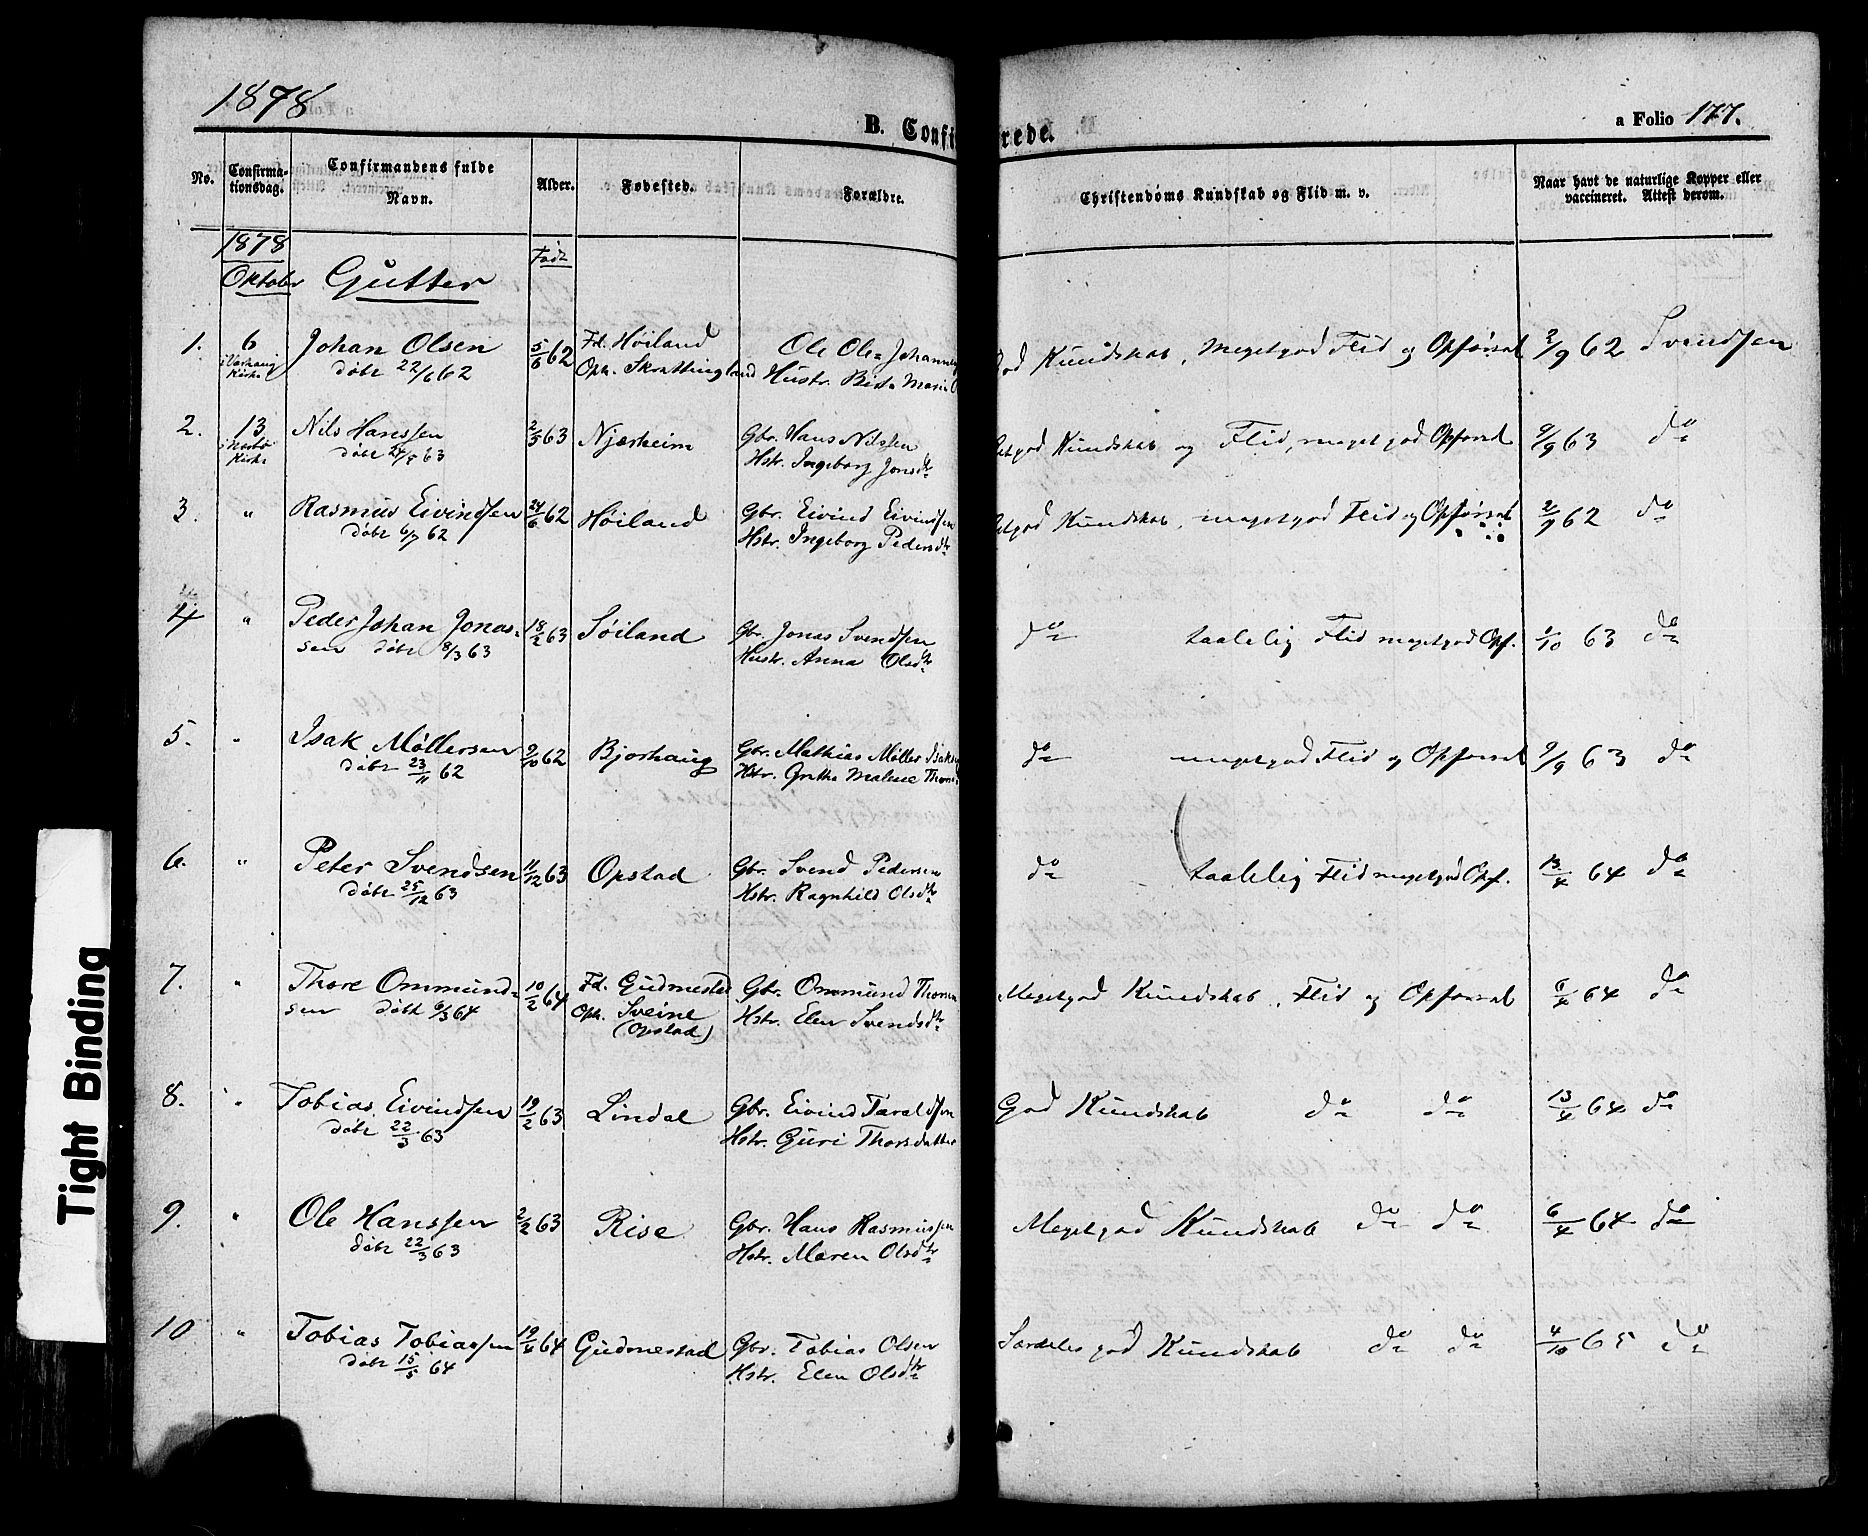 1878
B. Confi rede.
a Folio 177.
No. Confirma-tionsdag. Confirmandens fulde Navn. Alder. Fødested. Forældre. Christendoms Kundskab og Flid m. v. Naar havt de naturlige Kopper eller vaccineret. Attest derom.
1878 Født
Oktober Gutter
1. 6 Johan Olsen 5/6 62 Fd. Høiland Ole Olsen
i Varhaug Kirke døbt 22/6 62 Oph. Skrettingland Hustr.
Kundskab, megetgod Flid og Opførsel 2/9 62 Svendsen
2. 13 Nils Hanssen 2/3 63 Njærheim Gbr. Hans Nilssen
i Nærbø Kirke døbt 63 Hstr. Ingeborg Jonsdtr
Kundskab og Flid, meget god Opførsel 9/9 63 do
3. " Rasmus Eivindsen 24/6 62 Høiland Gbr. Eivind Eivindsen
døbt 6/7 62 Hstr. Ingeborg Pedersdtr
Kundskab, megetgod Flid og Opførsel 2/9 62 do
4 " Peder Johan Jonas- 18/2 63 Søiland Gbr. Jonas Svendsen
sen døbt 8/3 63 Hustr. Anna Olsdtr
do taalelig Flid megetgod Opf. /10 63 do
5. " Isak Møllersen 9/10 62 Bjorhaug Gbr. Mathias Møller Isaks
døbt 23/11 62 Hstr. Grethe Malene Thom
do megetgod Flid og Opførsel 9/9 63 do
6. " Peter Svendsen 11/12 63 Opstad Gbr. Svend Pedersen
døbt 25/12 63 Hstr. Ragnhild Olsdtr
do taalelig Flid megetgod Opf. 13/4 64 do
7. " Thore Ommund- 10/2 64 Fd. Gudmestad Gbr. Ommund Thorsen
sen døbt 6/3 64 Oph. Sveine Hstr. Elen Svendsdtr
(Opstad)
Megetgod Kundskab, Flid og Opførsel 6/4 64 do
8. " Tobias Eivindsen 19/2 63 Lindal Gbr. Eivind Taraldsen
døbt 22/3 63 Hstr. Guri Thorsdatter
God Kundskab do do 13/4 64 do
9. " Ole Hanssen 2/2 63 Rise Gbr. Hans Rasmussen
døbt 22/3 63 Hstr. Maren Olsdtr
Megetgod Kundskab do do 6/4 64 do
10 " Tobias Tobiassen 19/4 64 Gudmestad Gbr. Tobias Olsen
døbt 15/5 64 Hstr. Elen Olsdtr
Særdeles god Kundskab do do 4/10 65 do
Tight Binding